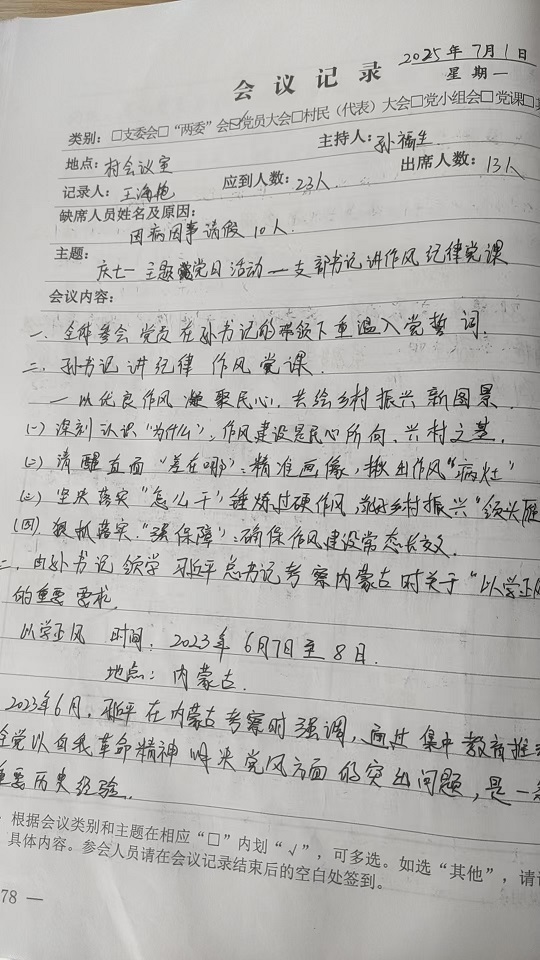 2025年7月1日
会议记录
星期一
类别：□支委会□“两委”会☑党员大会□村民（代表）大会□党小组会□党课□
地点：村会议室
主持人：孙福生
记录人：王海艳
应到人数：23人
出席人数：13人
缺席人员姓名及原因：
因病因事请假10人.
主题：
庆七一主题党日活动—支部书记讲作风纪律党课
会议内容：
一. 全体参会党员在孙书记的带领下重温入党誓词.
二. 孙书记讲纪律作风党课.
—以优良作风凝聚民心. 共绘乡村振兴新图景.
(一) 深刻认识“为什么”：作风建设是民心所向、兴村之基.
(二) 清醒直面“差在哪”：精准画像，揪出作风“病灶”
(三) 坚决落实“怎么干”锤炼过硬作风，乡村振兴“领头雁
(四) 狠抓落实.“强保障”：确保作风建设常态长效.
三. 由孙书记领学习近平总书记考察内蒙古时关于“以学正风
的重要要求.
以学正风 时间：2023年6月7日至8日.
地点：内蒙古.
2023年6月，习近平在内蒙古考察时强调，通过集中教育推动
全党以自我革命精神解决党风方面的突出问题，是一条
重要历史经验.
根据会议类别和主题在相应“□”内划“√”，可多选。如选“其他”，请
具体内容。参会人员请在会议记录结束后的空白处签到。
78 —